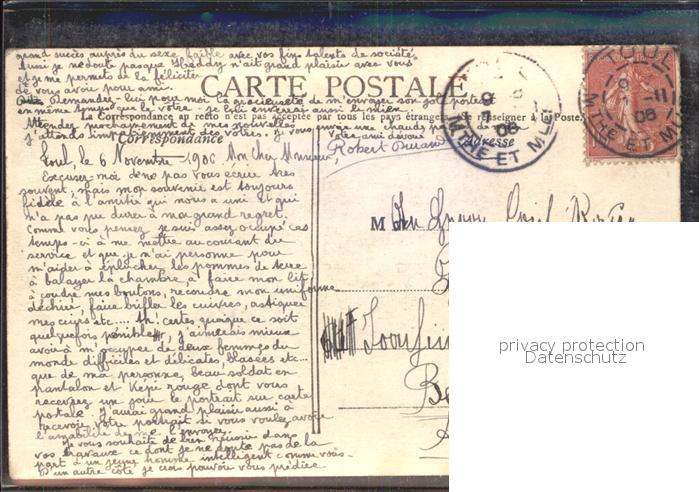 grand succès auprès du sexe faible avec vos fins talents de société
Aussi je ne doute pas que Freddy n'ait grand plaisir avec vous
et je me permets de la féliciter
de vous avoir pour ami.
Demandez-lui pour moi la gracieuseté de m'envoyer son portrait
en même temps que le vôtre. Je lui enverrai aussi le mien
CARTE POSTALE
La Correspondance au recto n'est pas acceptée par tous les pays étrangers. (Se renseigner à la Poste.)
Attendez prochainement de mes nouvelles
j'attends impatiemment des vôtres. je vous envoie une chaude poignée de main
Votre ami dévoué
Robert
Correspondance
Adresse
Toul, le 6 Novembre 1906 Mon cher Monsieur,
Excusez-moi de ne pas vous écrire très
souvent, mais mon souvenir est toujours
fidèle à l'amitié qui nous a uni et qui
n'a pas pu durer à mon grand regret.
Comme vous pensez je suis assez occupé ces
temps-ci à me mettre au courant du
service et que je n'ai personne pour
m'aider à éplucher les pommes de terre
à balayer la chambre, à faire mon lit,
à coudre mes boutons, recoudre mon uniforme
déchiré, faire briller les cuivres, astiquer
mes cuirs, etc... Ah! certes quoique ce soit
quelquefois pénible, j'aimerais mieux
avoir à m'occuper de deux femmes du
monde difficiles et délicates, blasées etc...
que de ma personne, beau soldat en
pantalon et képi rouge dont vous
recevrez un jour le portrait sur carte
postale. J'aurai grand plaisir aussi à
recevoir votre portrait si vous voulez avoir
l'amabilité de me l'envoyer.
Je vous souhaite de bien réussir dans
vos travaux ce dont je ne doute pas de la
part d'un jeune homme intelligent comme vous.
D'un autre côté je crois pouvoir vous prédire
M
TOUL
11
06
MTHE ET MLLE
06
MTHE ET MLLE
privacy protection
Datenschutz